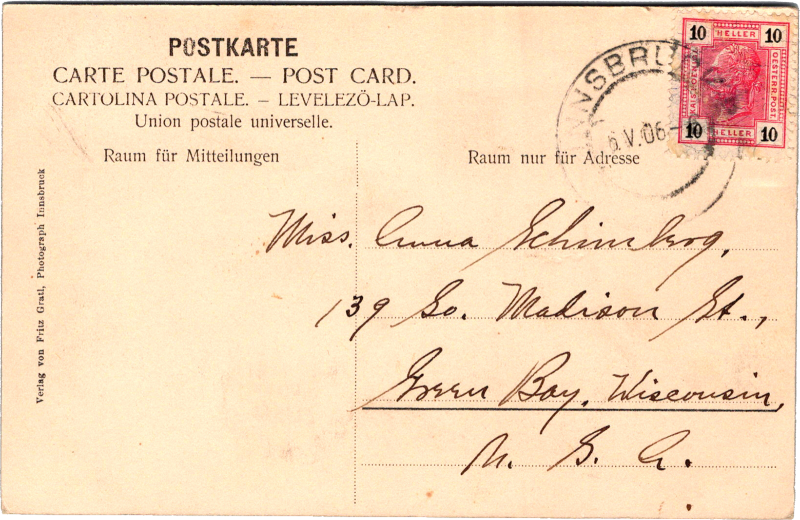 POSTKARTE
CARTE POSTALE. — POST CARD.
CARTOLINA POSTALE. – LEVELEZÖ-LAP.
Union postale universelle.
Raum für Mitteilungen
Raum nur für Adresse
Verlag von Fritz Gratl, Photograph Innsbruck
10 HELLER 10
OESTERR. POST
10 HELLER 10
INNSBRUCK
6.V.06
Miss. Anna
139 So. Madison St.,
Green Bay, Wisconsin,
U. S. A.